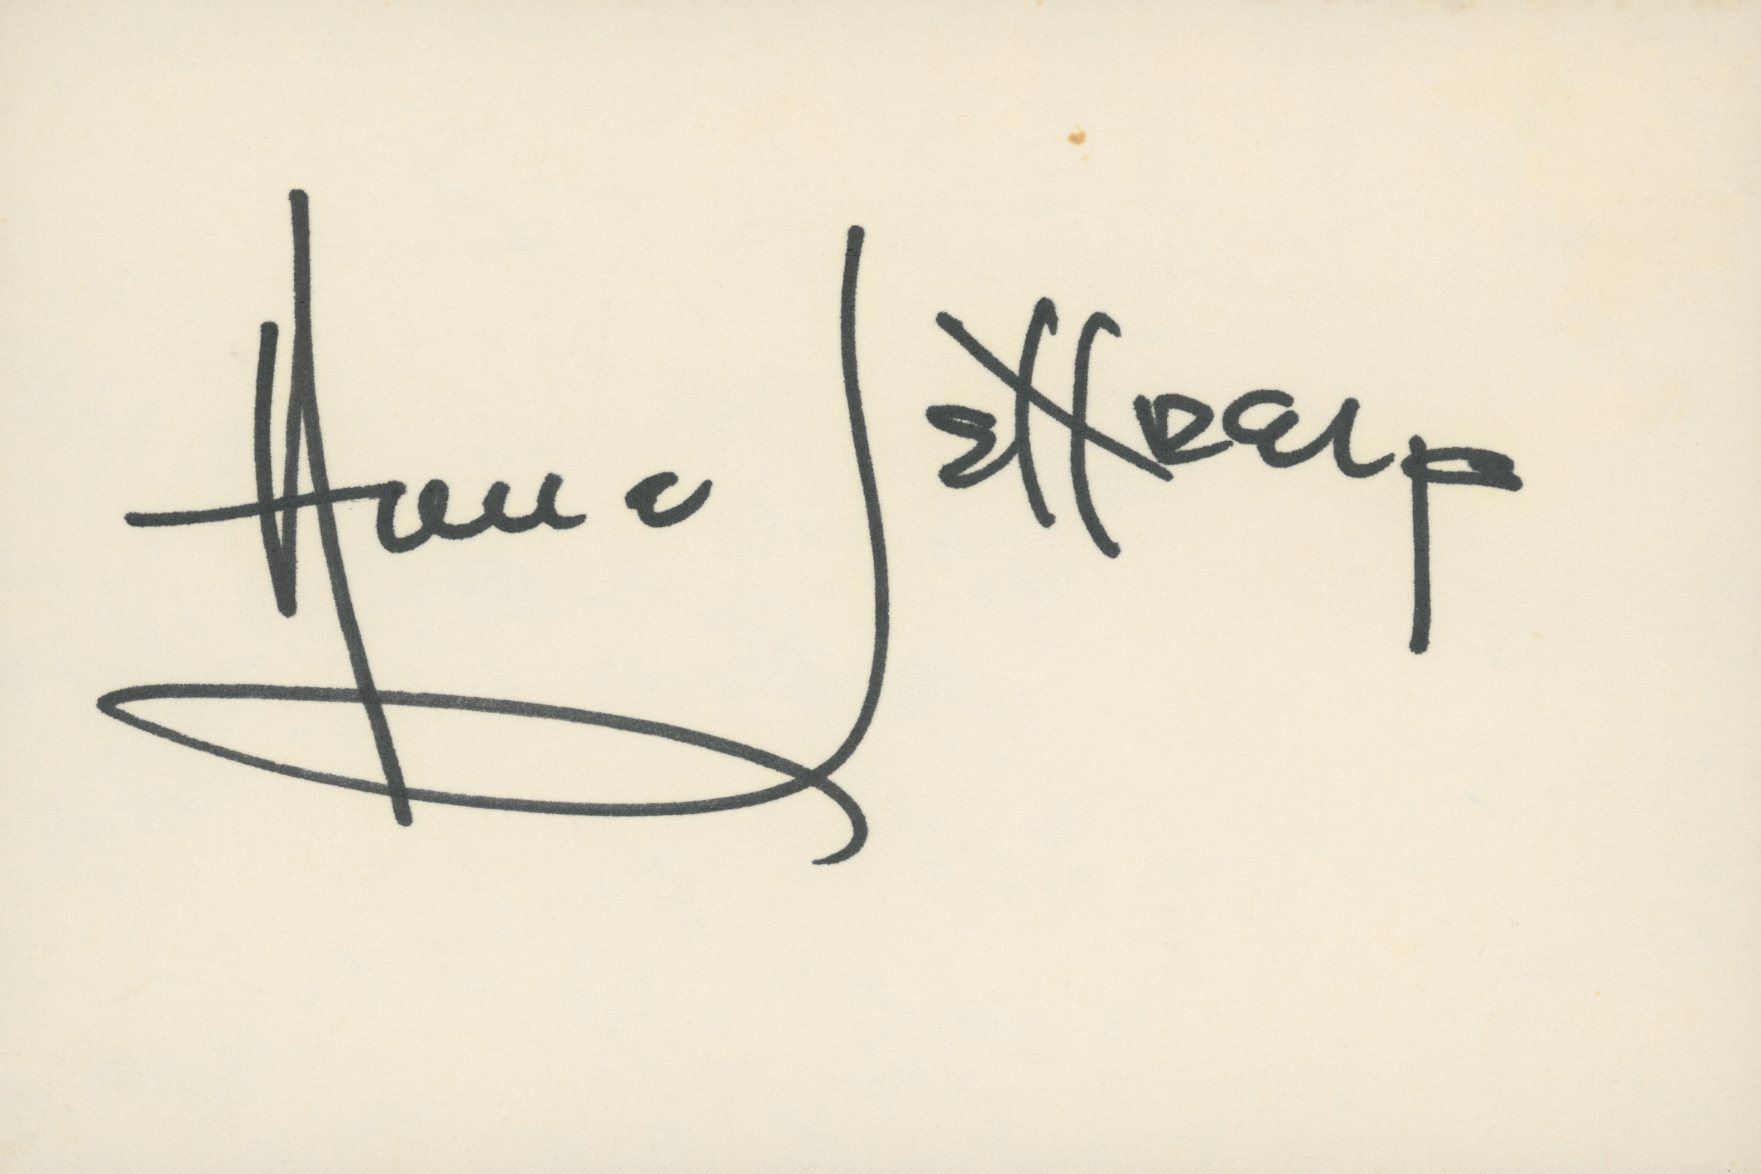 Anne Jeffreys